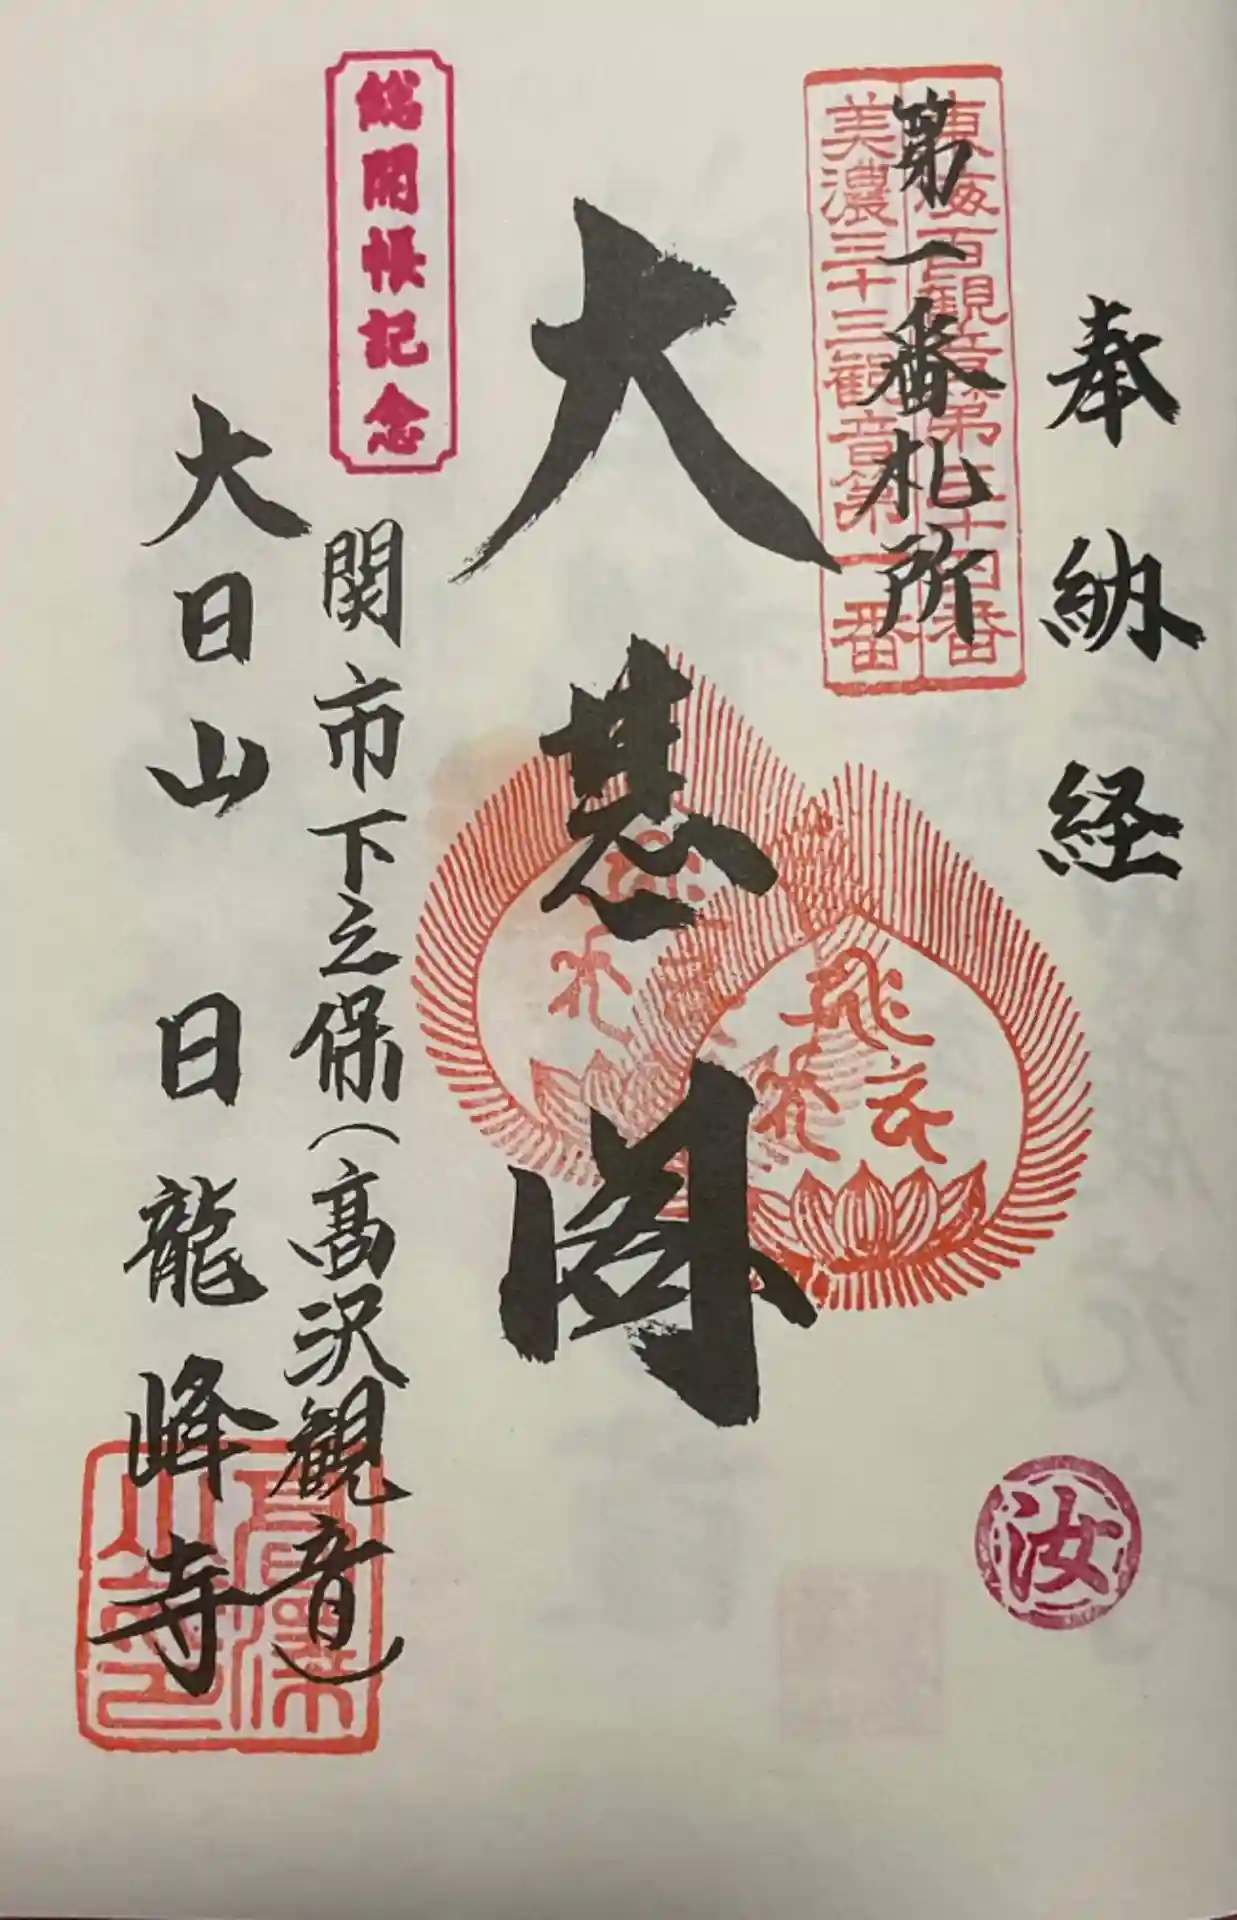 奉納経
東海百観音第三十四番
美濃三十三観音第一番
第一番札所
大悲閣
総開帳記念
関市下之保（高沢観音）
大日山 日龍峰寺
高澤山印
汝